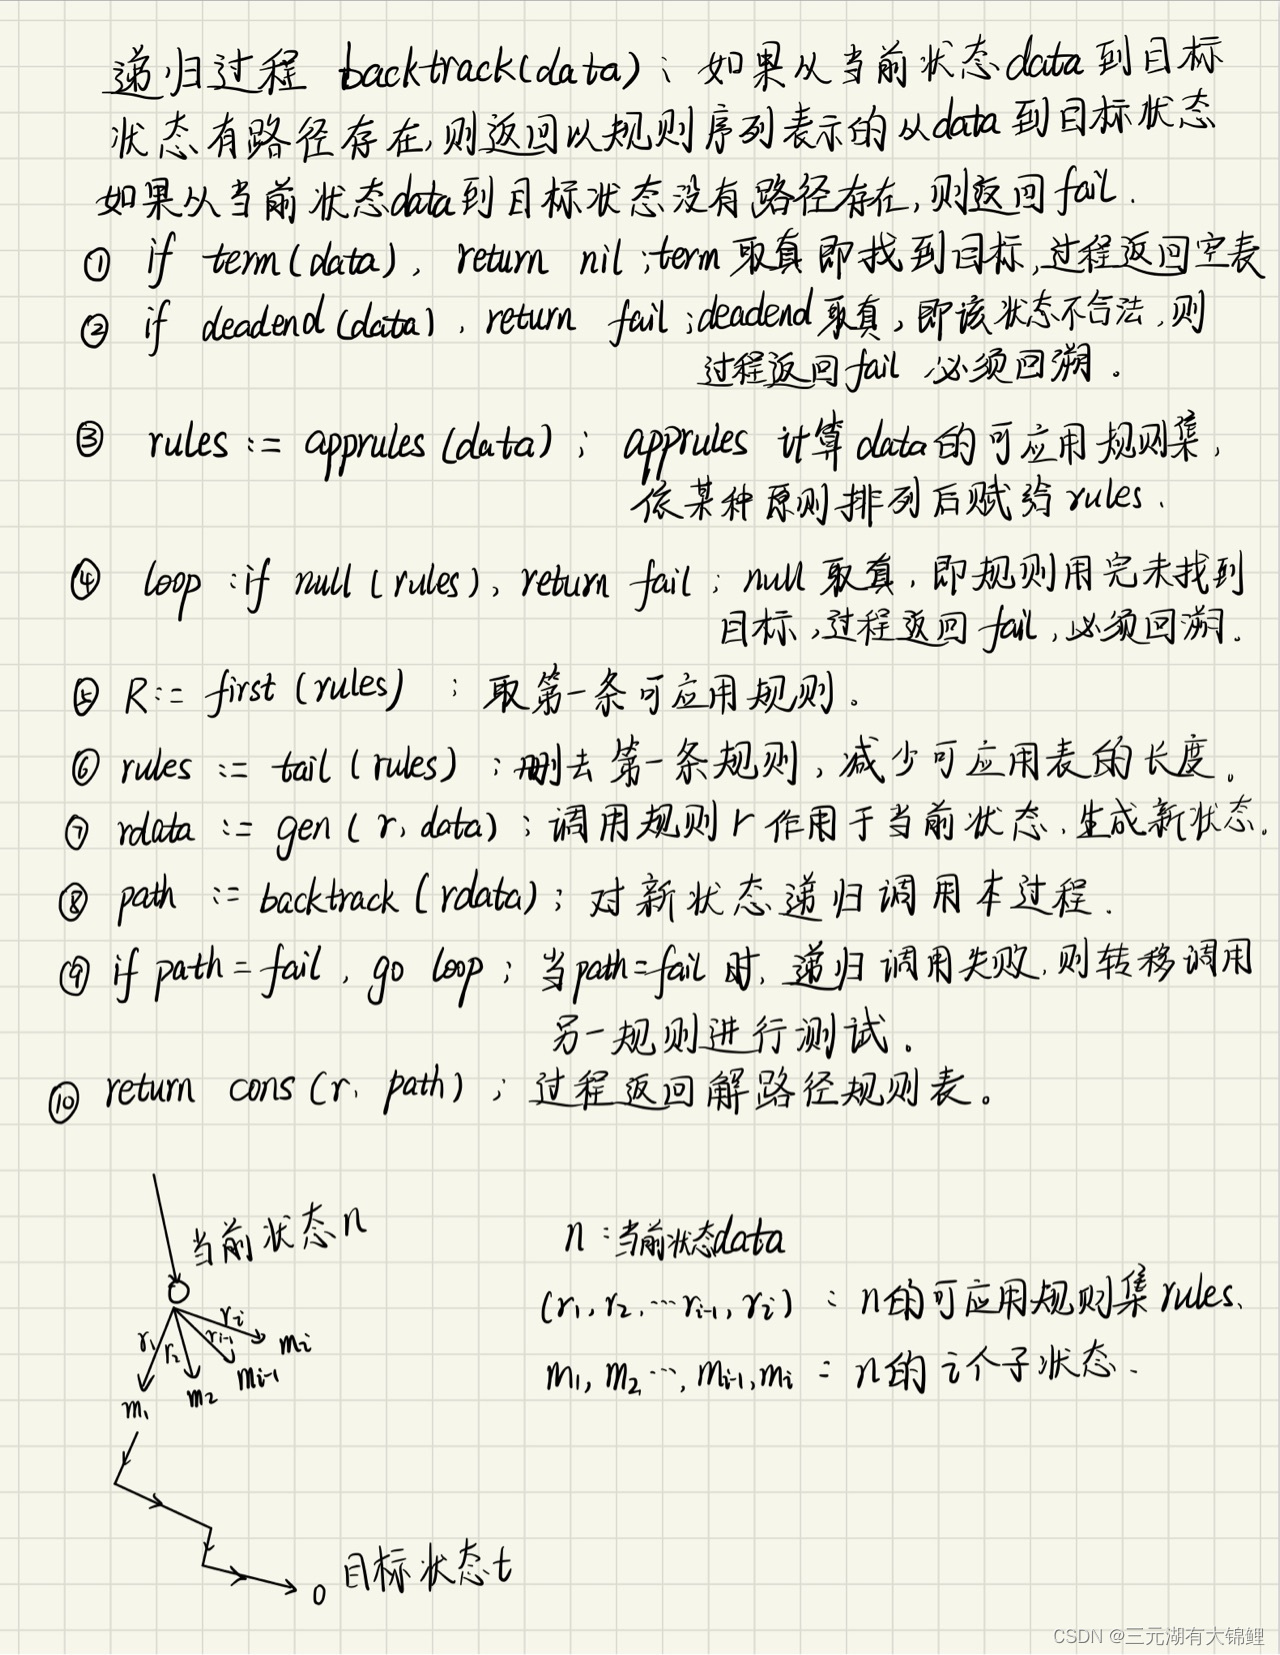 递归过程 backtrack(data); 如果从当前状态data到目标
状态有路径存在,则返回以规则序列表示的从data到目标状态
如果从当前状态data到目标状态没有路径存在,则返回fail.
① if term(data), return nil;term取真即找到目标,过程返回空表
② if deadend(data), return fail;deadend取真,即该状态不合法,则
过程返回fail 必须回溯.
③ rules := apprules(data); apprules 计算data的可应用规则集,
依某种原则排列后赋给rules.
④ loop:if null(rules), return fail; null取真,即规则用完未找到
目标,过程返回fail,必须回溯.
⑤ R:= first(rules) ; 取第一条可应用规则。
⑥ rules := tail(rules) ;删去第一条规则,减少可应用表的长度。
⑦ rdata := gen(r, data);调用规则r作用于当前状态,生成新状态.
⑧ path := backtrack(rdata);对新状态递归调用本过程.
⑨ if path=fail, go loop; 当path=fail时,递归调用失败,则转移调用
另一规则进行测试。
⑩ return cons(r, path) ;过程返回解路径规则表。
当前状态n
n:当前状态data
(r1,r2,…ri-1,ri) : n的可应用规则集rules.
m1,m2…,mi-1,mi : n的i个子状态.
r1 r2 ri-1 ri
m1 m2 mi-1 mi
目标状态t
CSDN @三元湖有大锦鲤